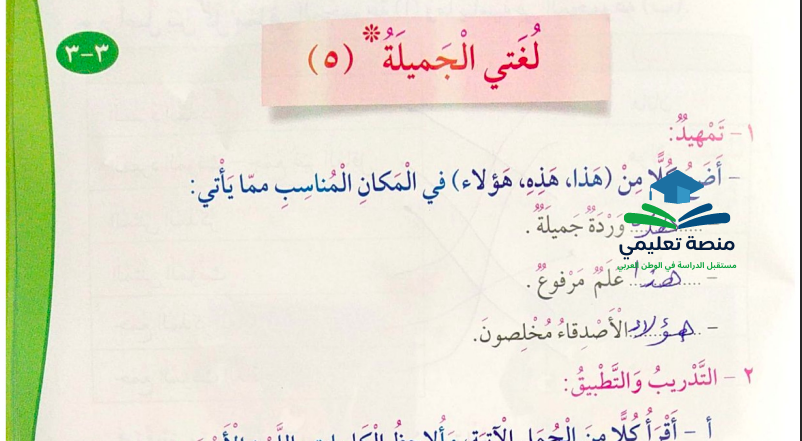 ٣-٣
لُغَتي الْجَميلَةُ * (٥)
١- تَمْهيدٌ:
- أَضَعُ كُلًّا مِنْ (هَذا، هَذِهِ، هَؤلاء) في الْمَكانِ الْمُناسِبِ ممّا يَأْتي:
هذه وَرْدَةٌ جَميلَةٌ .
منصة تعليمي
مستقبل الدراسة في الوطن العربي
- هذا عَلَمٌ مَرْفوعٌ .
- هؤلاء الْأَصْدِقاءُ مُخْلِصونَ.
٢- التَّدْريبُ وَالتَّطْبيقُ:
أ - أَقْرَأُ كُلًّا مِنَ الْجُمَلِ الْآتِيَةِ